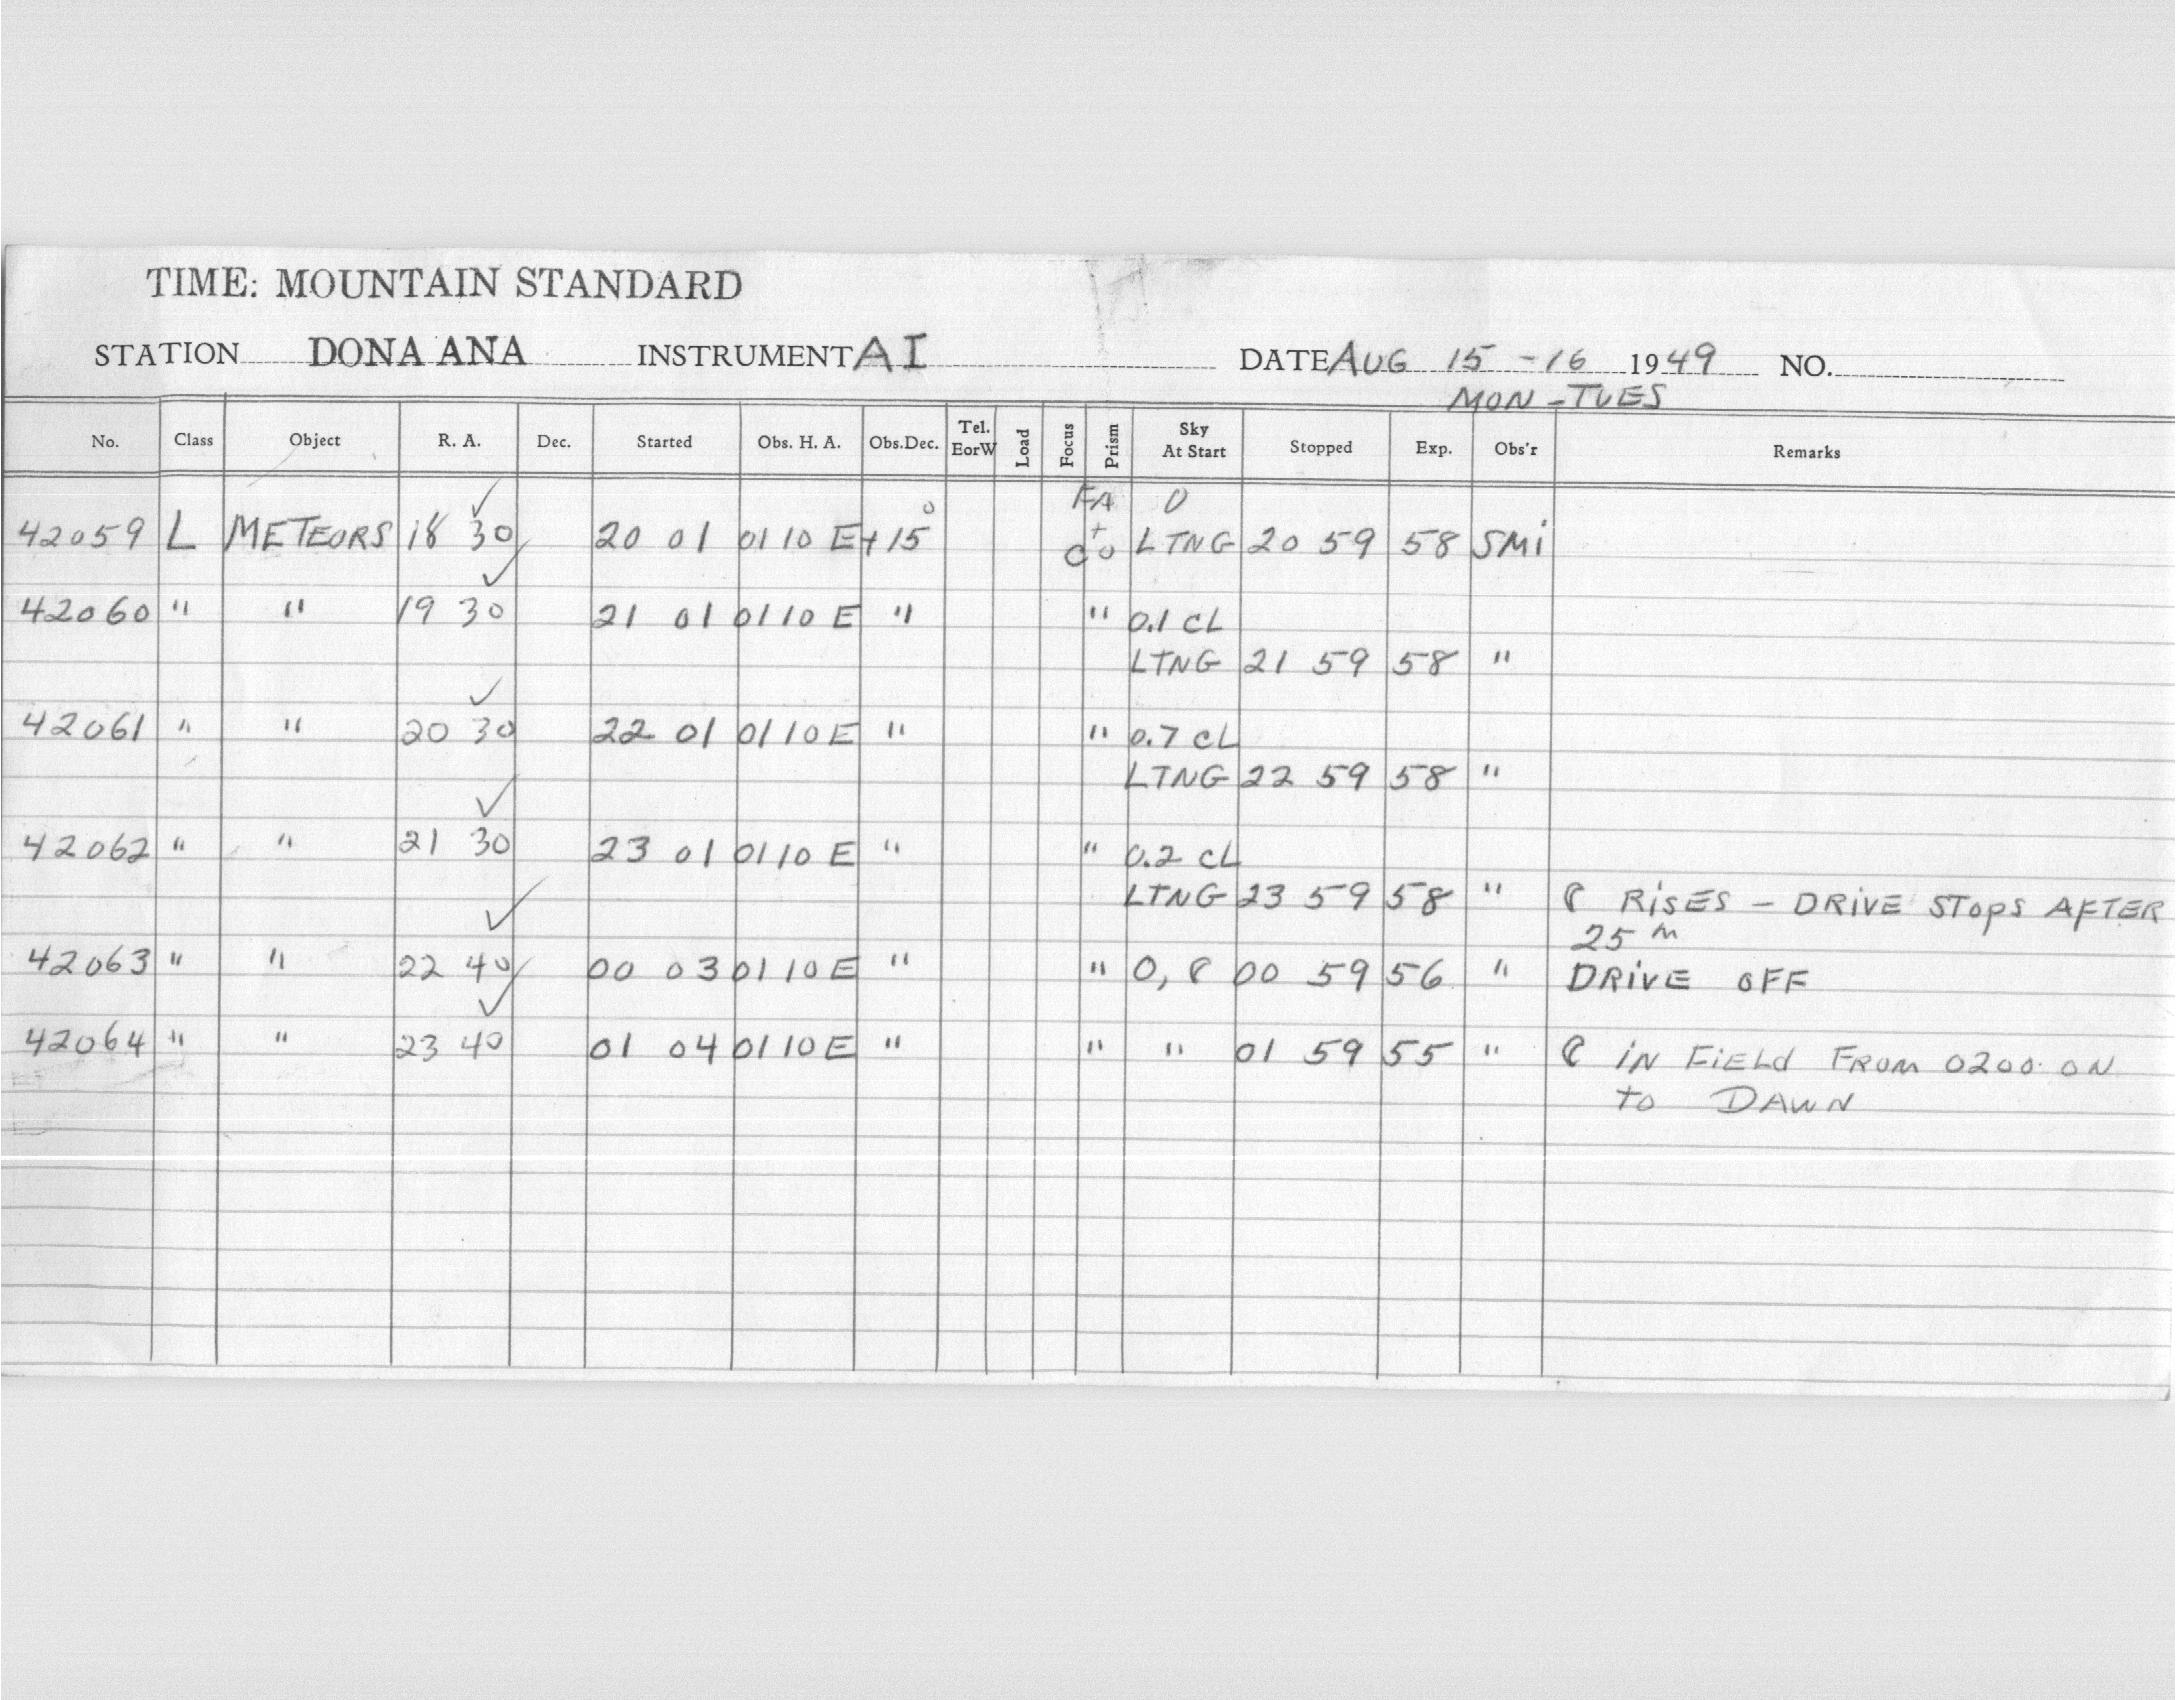 TIME: MOUNTAIN STANDARD
STATION DONA ANA INSTRUMENT AI DATE AUG 15 - 16 1949 NO.
MON - TUES
No. Class Object R. A. Dec. Started Obs. H. A. Obs.Dec. Tel. EorW Load Focus Prism Sky At Start Stopped Exp. Obs'r Remarks
FA 0
42059 L METEORS 18 30 20 01 01 10 E +15° + Co LTNG 20 59 58 SMi
42060 " " 19 30 21 01 01 10 E " " 0.1 CL
LTNG 21 59 58 "
42061 " " 20 30 22 01 01 10 E " " 0.7 CL
LTNG 22 59 58 "
42062 " " 21 30 23 01 01 10 E " " 0.2 CL
LTNG 23 59 58 " ☾ RiSES - DRiVE STOpS AFTER
25 m
42063 " " 22 40 00 03 01 10 E " " 0, ☾ 00 59 56 " DRiVE OFF
42064 " " 23 40 01 04 01 10 E " " " 01 59 55 " ☾ iN FiELd FROM 0200 ON
to DAWN